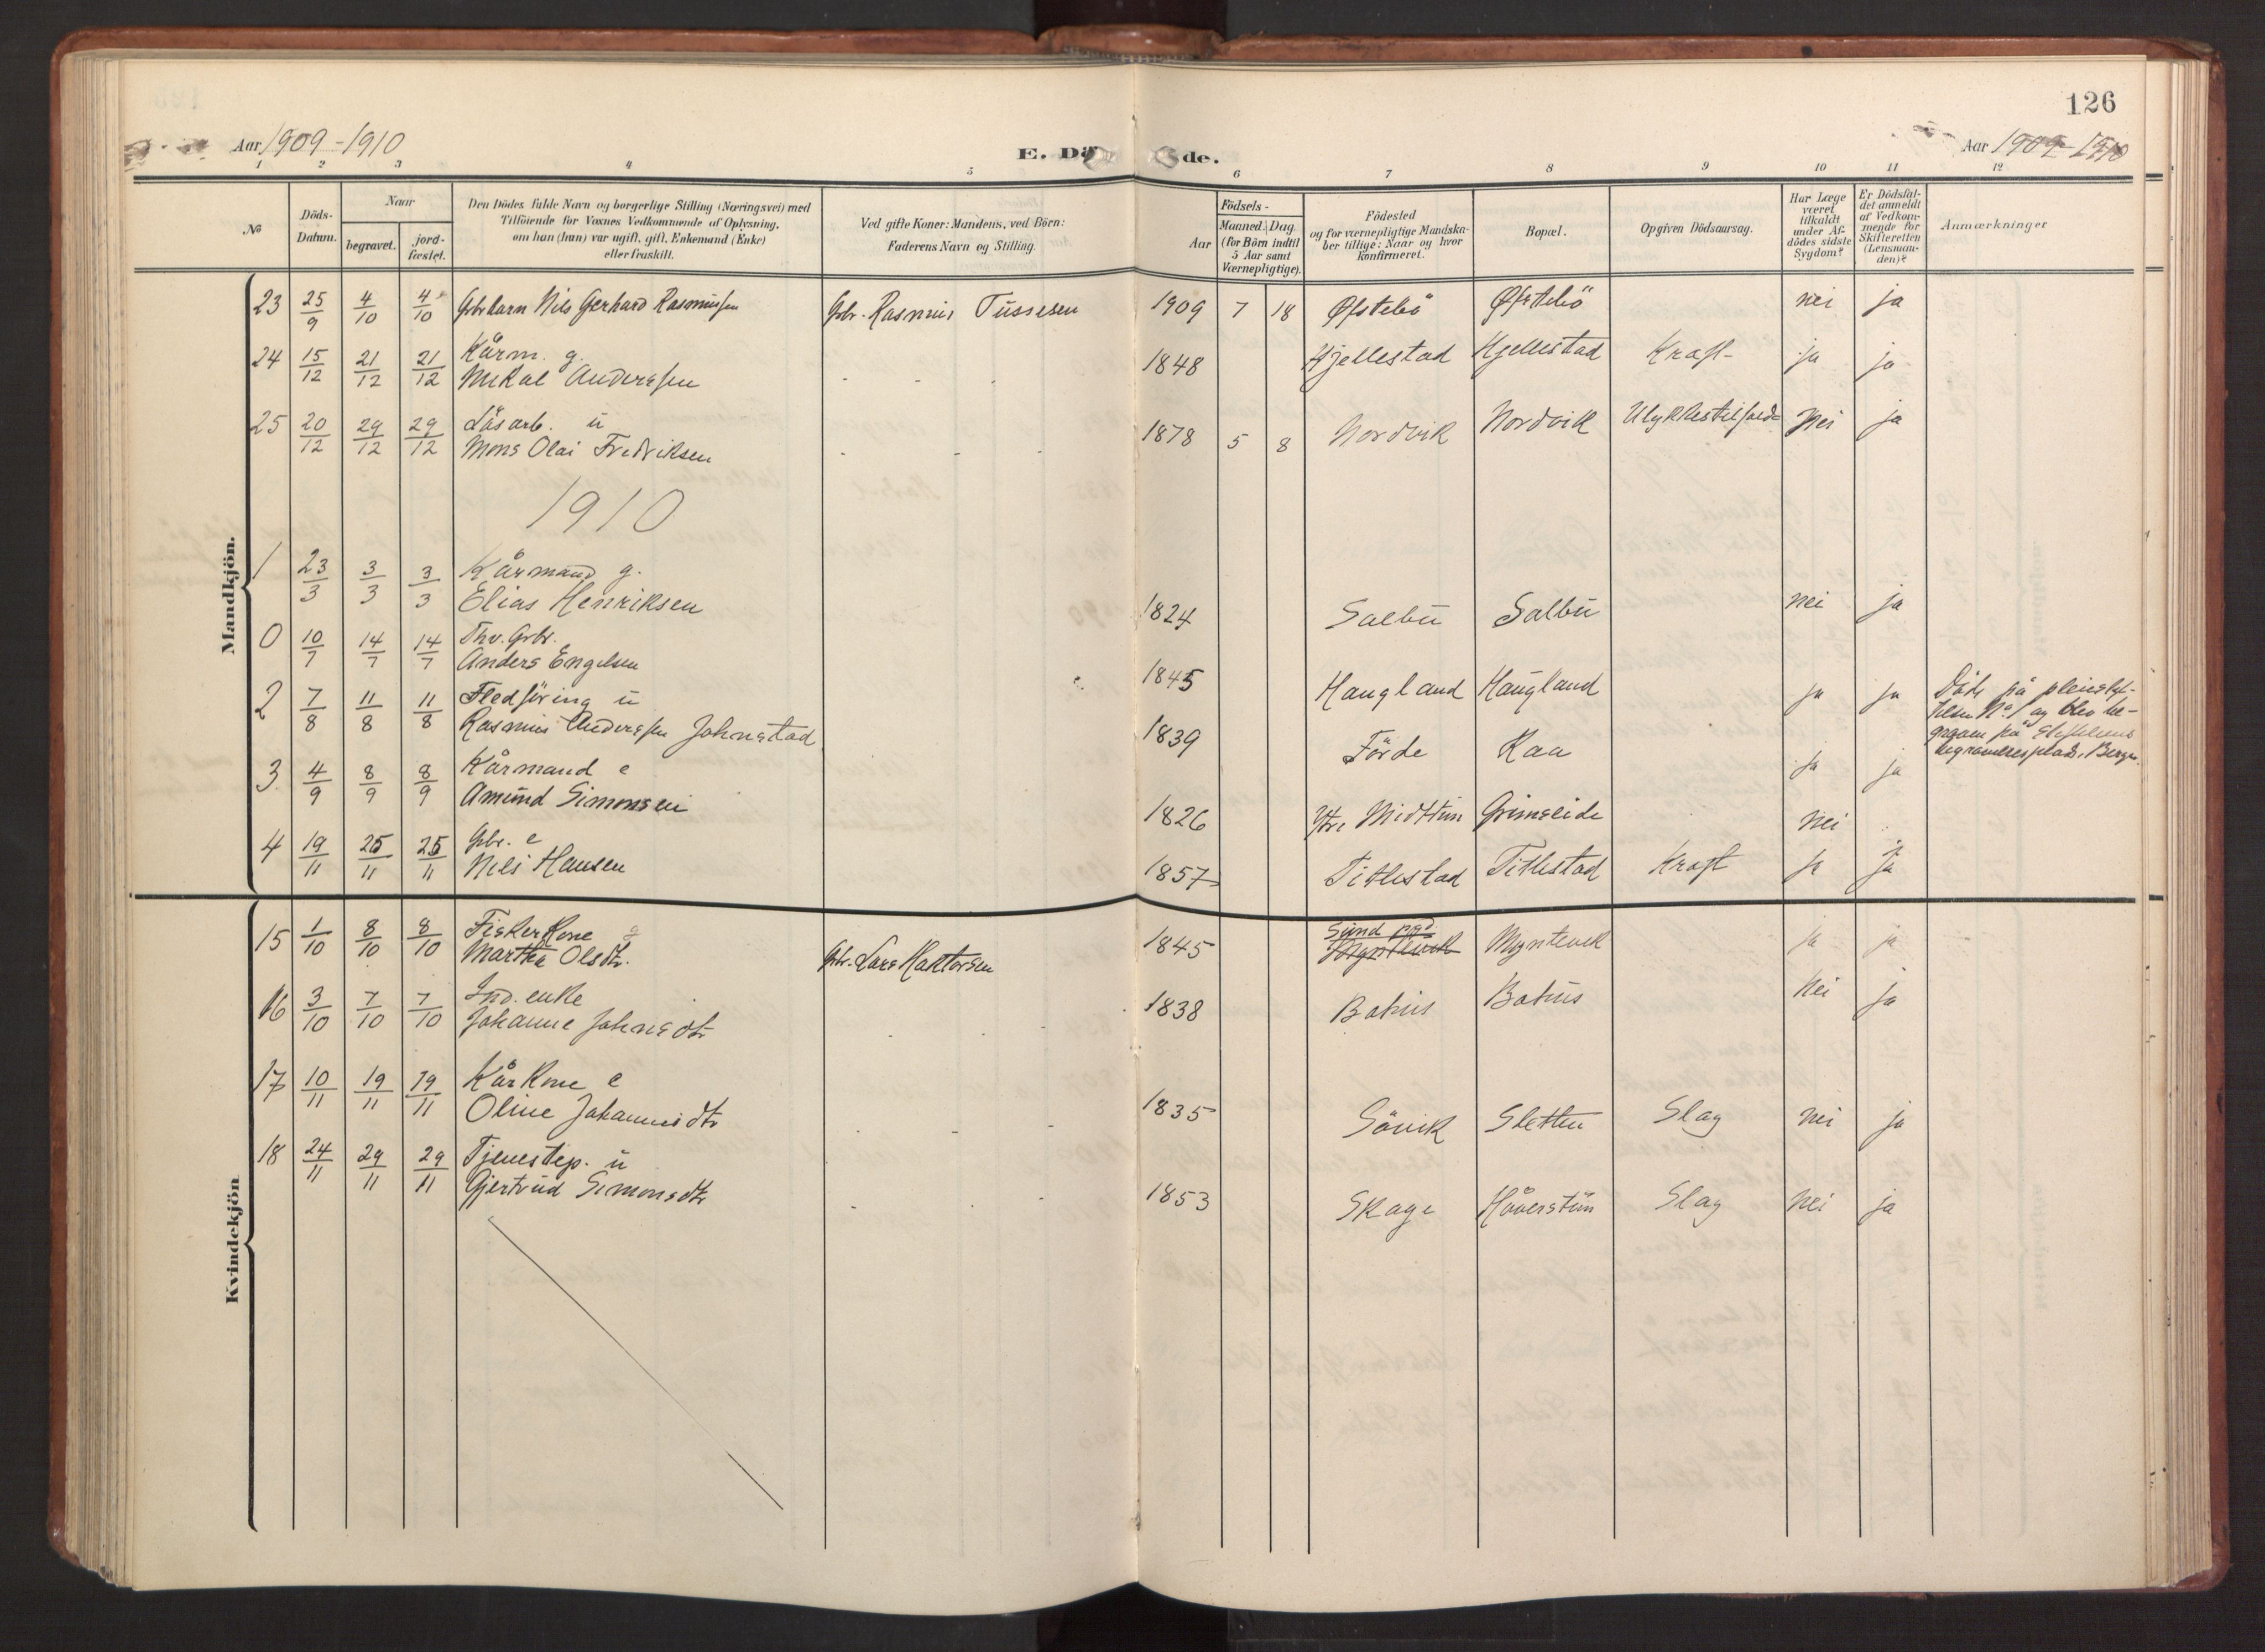 126
Aar 1909-1910
E. Dö de.
Aar 1909-1910
1 2 3 4 5 6 7 8 9 10 11 12
No
Döds-Datum.
Naar
begravet.
jord-fæstet.
Den Dödes fulde Navn og borgerlige Stilling (Næringsvei) med
Tilföiende for Voxnes Vedkommende af Oplysning,
om han (hun) var ugift, gift, Enkemand (Enke)
eller fraskilt.
Ved gifte Koner: Mandens, ved Börn:
Faderens Navn og Stilling.
Födsels-
Aar
Maaned. Dag.
(for Börn indtil
5 Aar samt
Værnepligtige).
Födested
og for værnepligtige Mandska-
ber tillige: Naar og hvor
konfirmeret.
Bopæl.
Opgiven Dödsaarsag.
Har Læge
været
tilkaldt
under Af-
dödes sidste
Sygdom?
Er Dödsfal-
det anmeldt
af Vedkom-
mende for
Skifteretten
(Lensman-
den)?
Anmærkninger
Mandkjön.
23 25/9 4/10 4/10 Gbr barn Nils Gerhard Rasmussen Gbr. Rasmus Tussesen 1909 7 18 Øfstebö Øfstebö nei ja
24 15/12 21/12 21/12 Kårm. g.
Mikal Anderssen - - - 1848 Hjellestad Hjellestad Kræft- ja ja
25 20/12 29/12 29/12 Lösarb. ü
Mons Olai Fredriksen - - - 1878 5 8 Nordvik Nordvik Ulykkestilfælde nei ja
1910
1 23/3 3/3 3/3 Kårmand g.
Elias Henriksen 1824 Salbü Salbü nei ja
0 10/7 14/7 14/7 Thv. Grbr.
Anders Engelsen 1845 Haugland Haügland ja ja
Döde på pleiestif-
telsen No 1 og blev be-
graven på
begravelsesplads, Bergen.
2 7/8 11/8 11/8 Fledföring ü
Rasmus Anderssen Johnstad 1839 Förde Raa ja ja
3 4/9 8/9 8/9 Kårmand e
Amünd Simonsen 1826 Ytre Midttün Grimseide nei
4 19/11 25/11 25/11 Gbr. e
Nils Hansen 1857 Titlestad Titlestad Kræft ja ja
Kvindekjön
15 1/10 8/10 8/10 Fisker Kone g
Martha Olsdtr. Gbr. Lars Haktorsen 1845 Sünd pgd
Myntevik Myntevik ja ja
16 3/10 7/10 7/10 Ind. enke
Johanne Johnsdtr - - 1838 Bahüs Bahüs Nei ja
17 10/11 19/11 19/11 Kårkone e
Oline Johannesdtr - - - 1835 Sövik Sletten Slag nei ja
18 24/11 29/11 29/11 Tjenestep. ü
Gjertrüd Simonsdtr - - 1853 Skage Håverstün Slag Nei ja